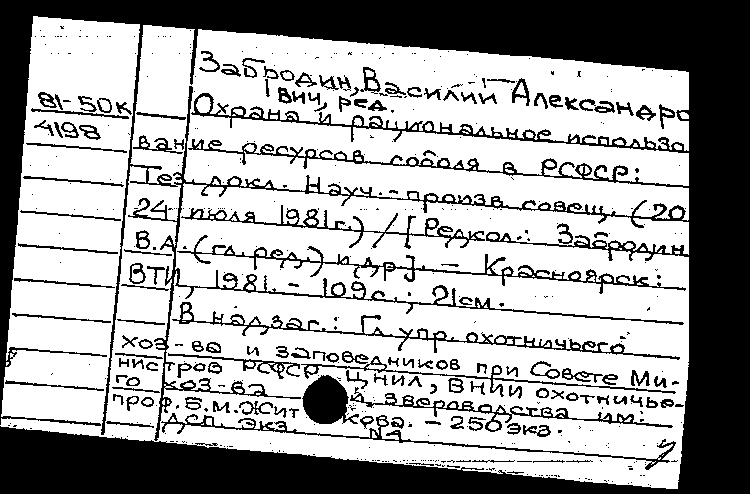 Забродин, Василий Александро
вич, ред.
81-50к
4198
Охрана и рациональное использо
вание ресурсов соболя в РСФСР:
Тез. докл. Науч.-произв. совещ. (20
24 июля 1981г.) / [Редкол.: Забродин
В.А. (гл. ред.) и др]. - Красноярск:
ВТИ, 1981. - 109с.; 21см.
В надзаг.: Гл. упр. охотничьего
хоз-ва и заповедников при Совете Ми-
нистров РСФСР, ЦНИЛ, ВНИИ охотничье-
го хоз-ва й, звероводства им.
проф. Б.М.Жит кова. - 250экз.
ДСП. Экз. №